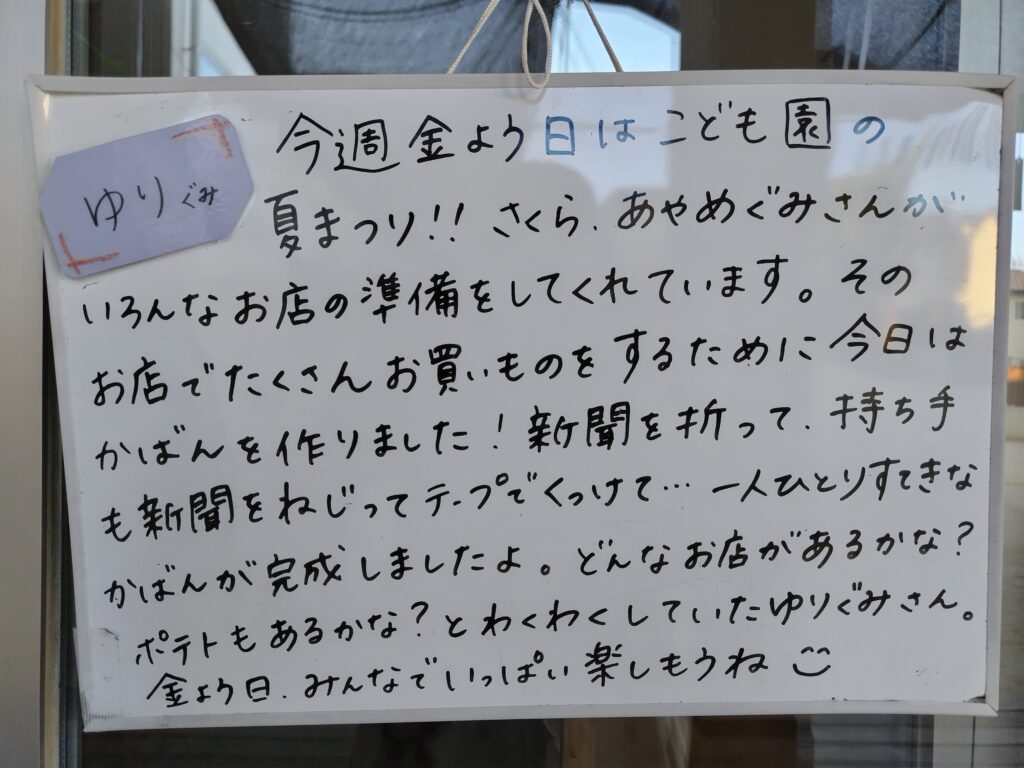 ゆりぐみ
今週金よう日はこども園の
夏まつり!! さくら、あやめぐみさんが
いろんなお店の準備をしてくれています。その
お店でたくさんお買いものをするために今日は
かばんを作りました!新聞を折って、持ち手
も新聞をねじってテープでくっけて… 一人ひとりすてきな
かばんが完成しましたよ。どんなお店があるかな?
ポテトもあるかな?とわくわくしていたゆりぐみさん。
金よう日、みんなでいっぱい楽しもうね